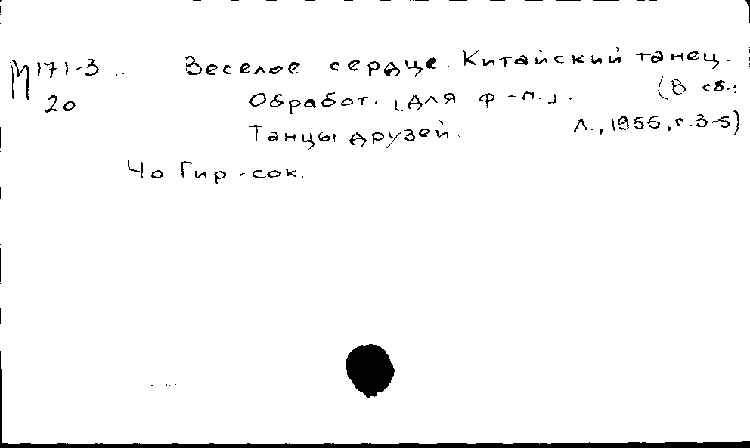 М 171-3 Веселое сердце. Китайский танец.
20 Обработ. [для ф-п.]. (В сб.:
Танцы друзей. Л., 1956, с. 3-5)
Чо Гир-сок.